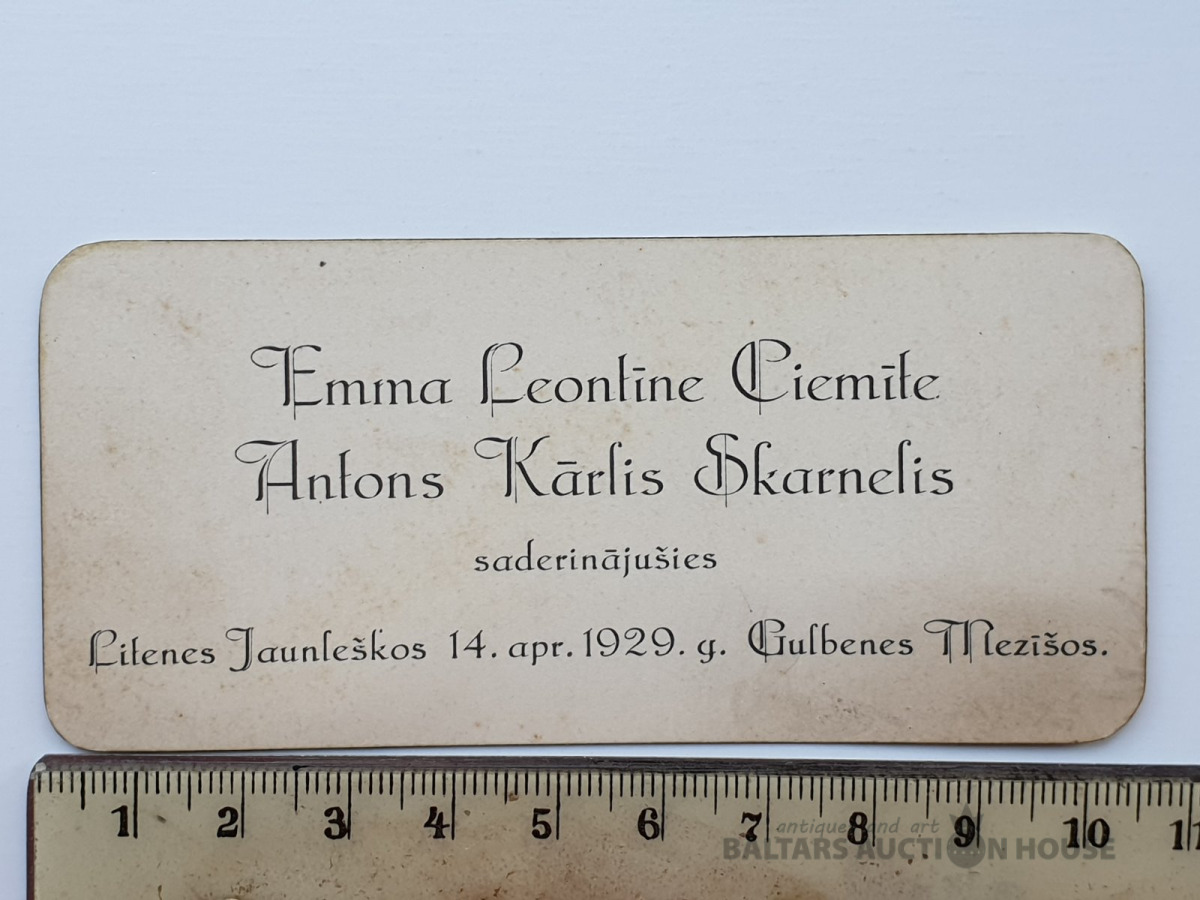 Emma Leontīne Ciemīte
Antons Kārlis Skarnelis
saderinājušies
Litenes Jaunleškos 14. apr. 1929. g. Gulbenes Mezīšos.
1 2 3 4 5 6 7 8 9 10 11
antique and art
BALTARS AUCTION HOUSE